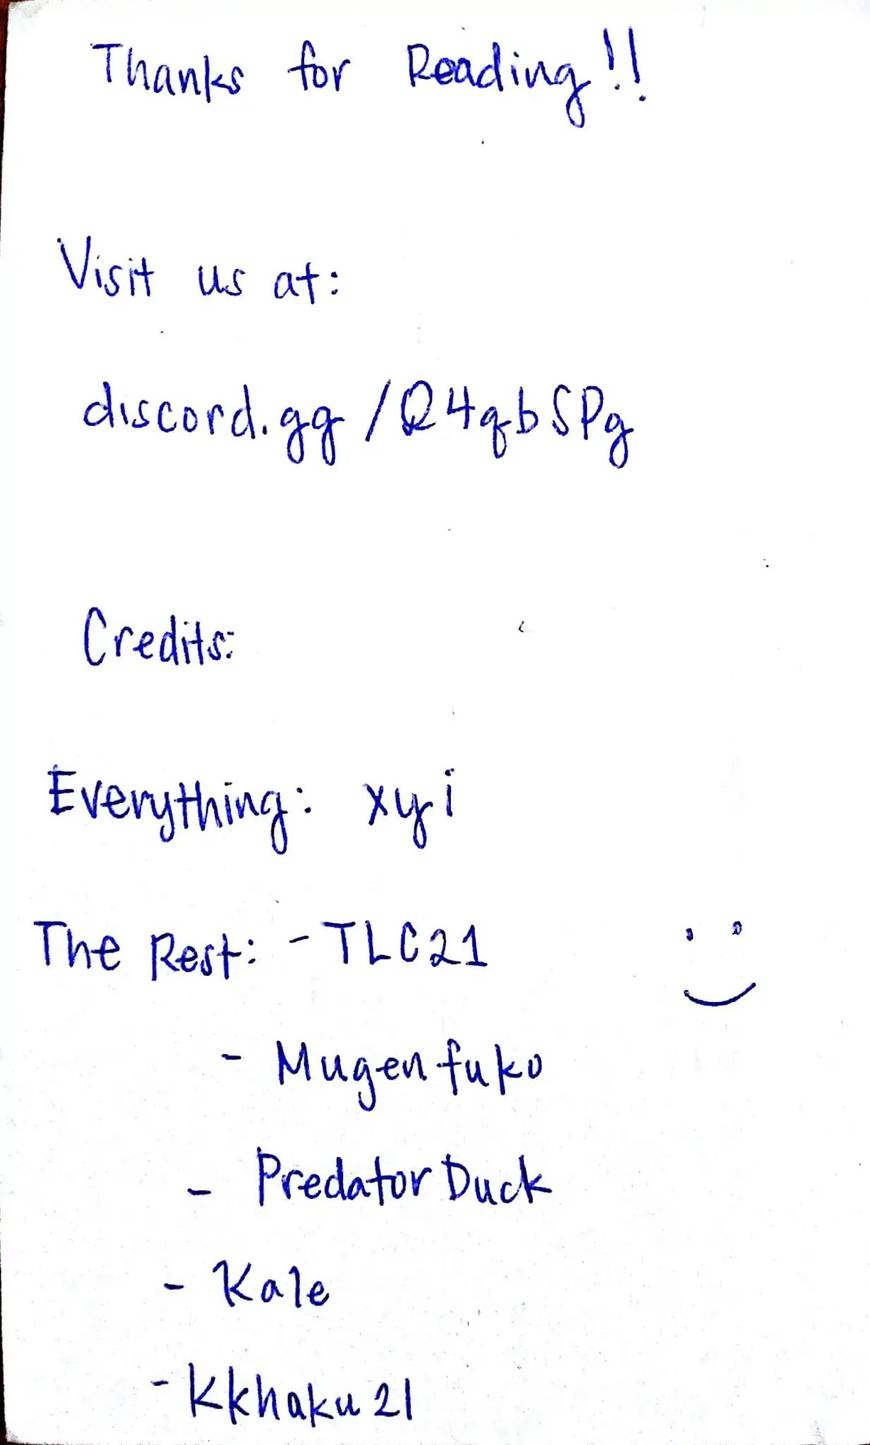 Thanks for Reading!!
Visit us at:
discord.gg/Q4qbSPg
Credits:
Everything: xyi
The Rest: - TLC21
- Mugenfuko
- PredatorDuck
- Kale
- Kkhaku21